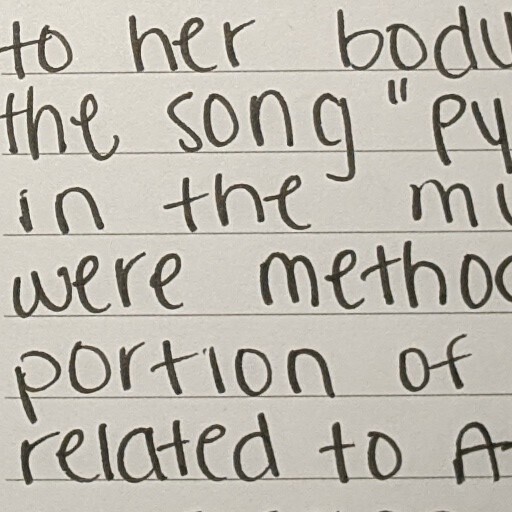 to her body
the song "py
in the mu
were method
portion of
related to A